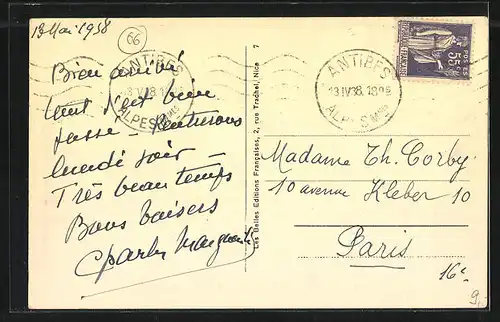 13 Mai 1938
66
Bien arrivé
tout s'est bien
passé - Rentrerons
lundi soir -
Très beau temps
Bons baisers
Charley Marguerite
ANTIBES
13 IV 38. 18
ALPES Mmes
Les Belles Editions Françaises, 2, rue Trachel, Nice 7
ANTIBES
13 IV 38. 18
ALPES Mmes
POSTES
55c
Madame Th. Corby
10 avenue Kleber 10
Paris
16e
9,-